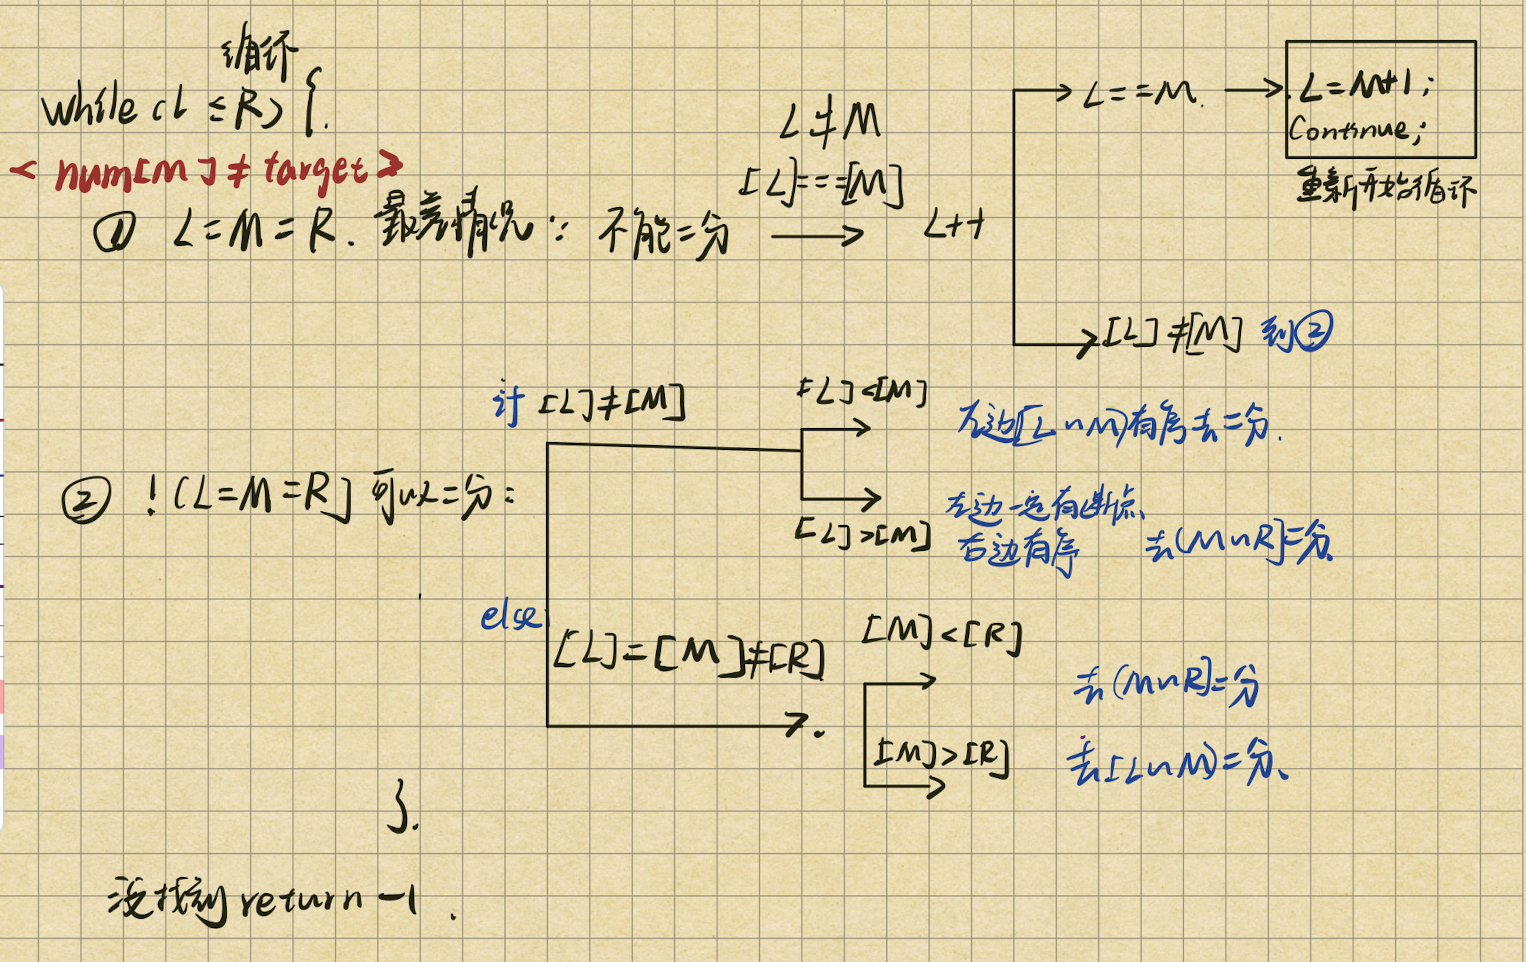 循环
while (L ≤ R) {
< num[M] ≠ target >
① L = M = R. 最差情况: 不能二分
L ≠ M
[L] == [M]
L++
L == M.
L = M+1;
Continue;
重新开始循环
[L] ≠ [M] 到②
② !(L = M = R] 可以二分:
[L] ≠ [M]
[L] < [M]
左边[L ~ M)有序去二分.
[L] > [M]
左边一定有断点、
右边有序 去(M ~ R]二分.
else
[L] = [M] ≠ [R]
[M] < [R]
去(M ~ R]二分
[M] > [R]
去[L ~ M)二分、
}.
没找到 return -1.